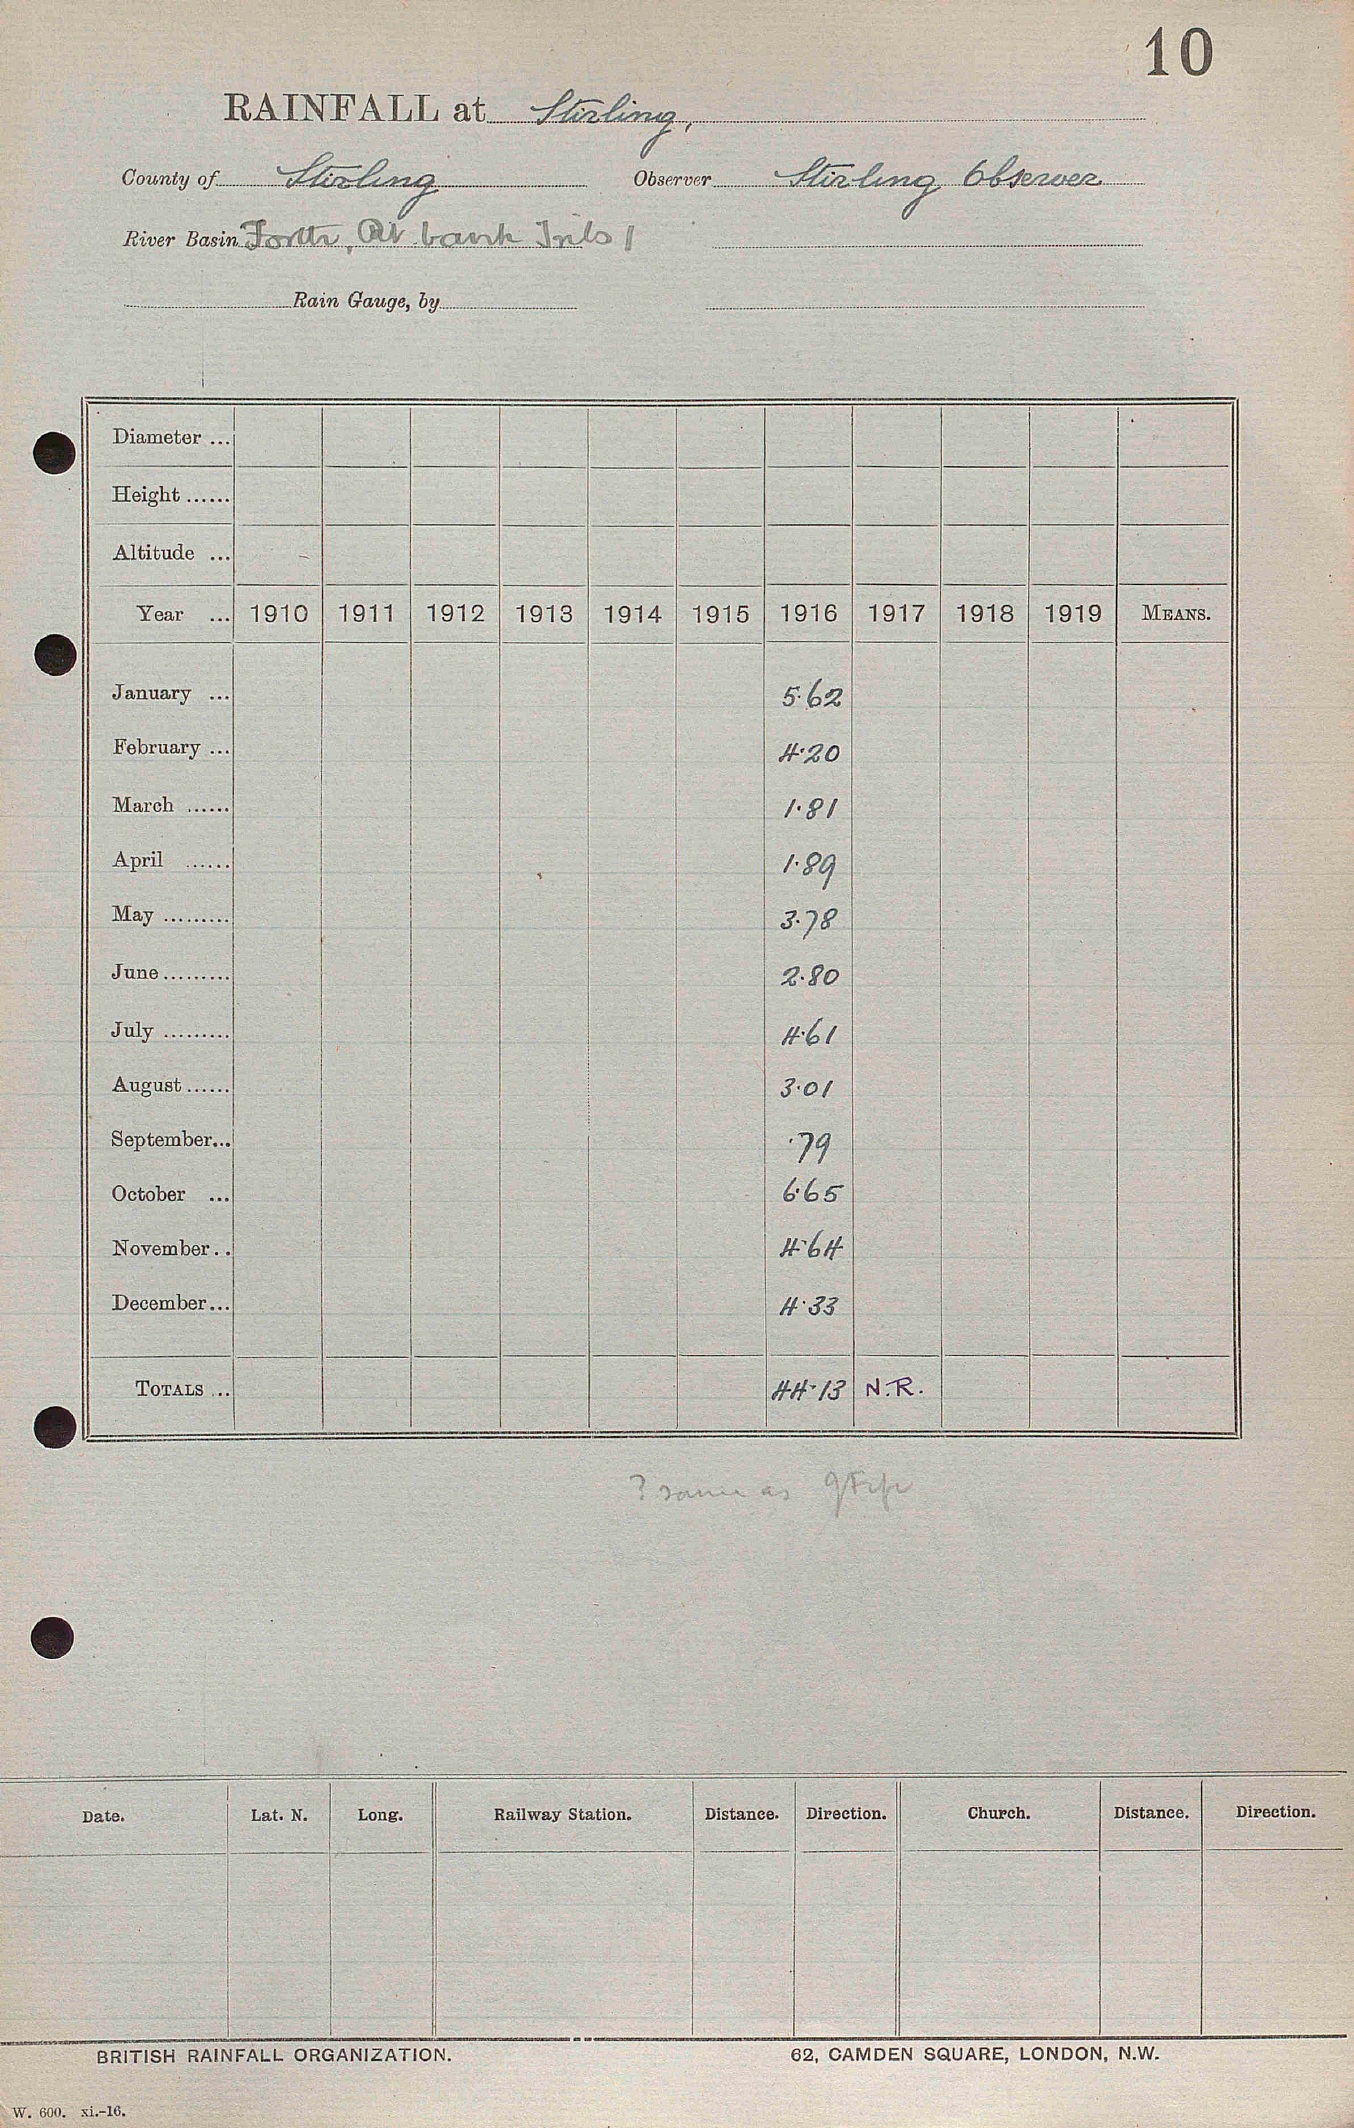 10
RAINFALL at Stirling,
County of Stirling Observer Stirling Observer
River Basin Forth, Rt bank Tribs 1
Rain Gauge, by
Diameter ...
Height ......
Altitude ...
Year ... 1910 1911 1912 1913 1914 1915 1916 1917 1918 1919 MEANS.
January ... 5.62
February ... 4.20
March ...... 1.81
April ...... 1.89
May ......... 3.78
June ......... 2.80
July ......... 4.61
August ...... 3.01
September... .79
October ... 6.65
November.. 4.64
December... 4.33
TOTALS ... 44.13 N.R.
? same as
Date. Lat. N. Long. Railway Station. Distance. Direction. Church. Distance. Direction.
BRITISH RAINFALL ORGANIZATION. 62, CAMDEN SQUARE, LONDON, N.W.
W. 600. xi.-16.